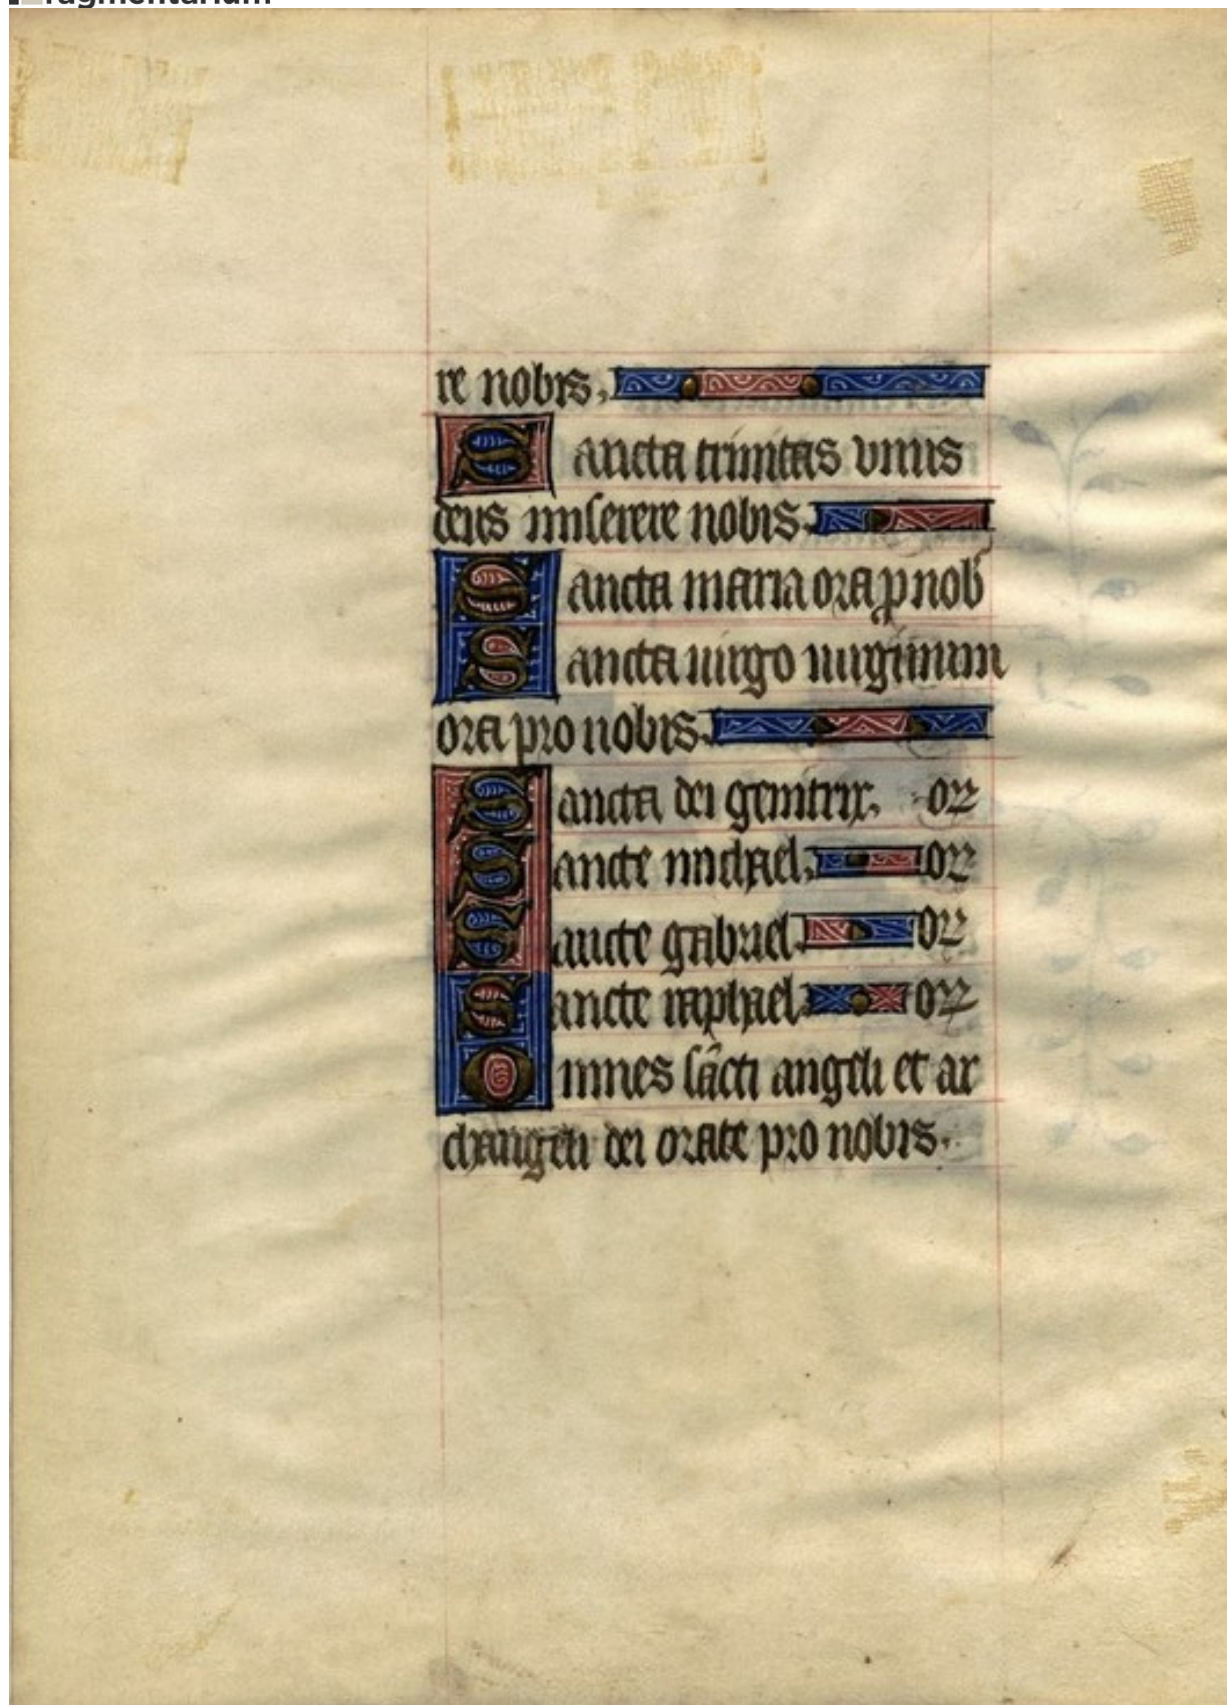 Fragmentarium
re nobis.
Sancta trinitas vnus
deus miserere nobis.
Sancta maria ora p nob
Sancta uirgo uirginum
ora pro nobis.
Sancta dei genitrix. or
Sancte michael. or
Sancte gabriel. or
Sancte raphael. or
Omnes sācti angeli et ar
changeli dei orate pro nobis.